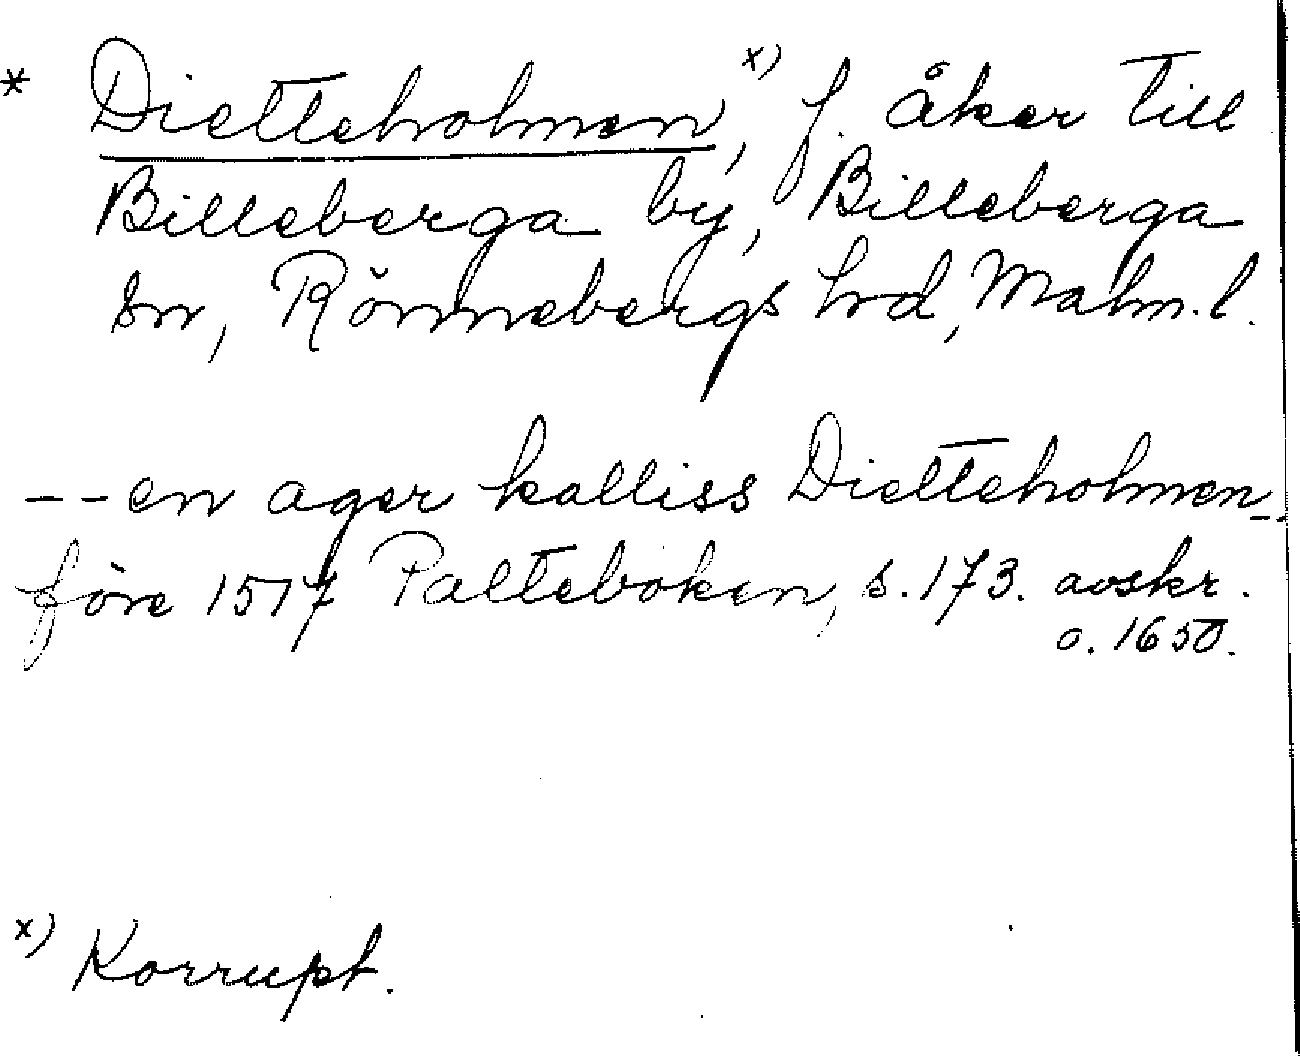 * Dietteholmen,ˣ⁾ f. åker till
Billeberga by, Billeberga
sn, Rönnebergs hrd, Malm. l.
-- en ager kalliss Dietteholmen --
före 1517 Palteboken, s. 173. avskr.
o. 1650.
x) Korrupt.